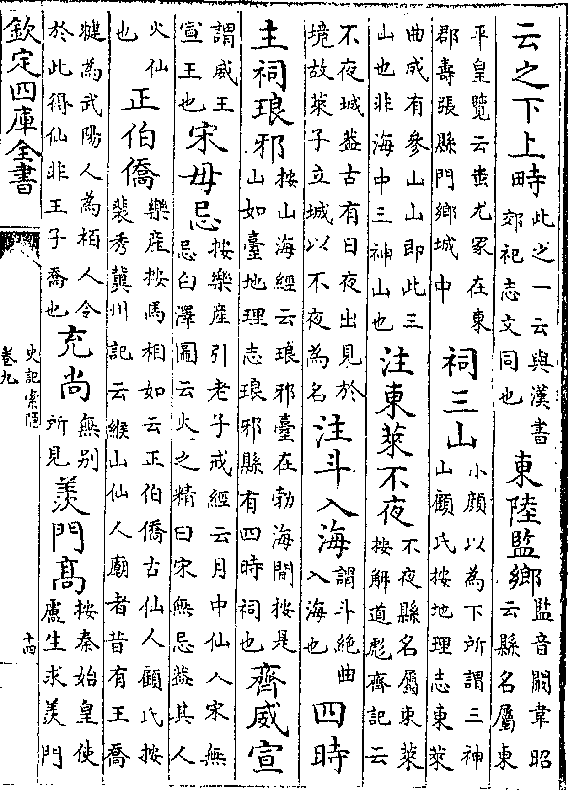 云之下上畤此之一云與漢書郊祀志文同也東陸監鄉監音闞韋昭云縣名屬東
平皇覽云蚩尤冢在東郡壽張縣門鄉城中祠三山小顔以為下所謂三神山顧氏按地理志東萊
曲成有參山山即此三山也非海中三神山也注東萊不夜不夜縣名屬東萊按解道彪齊記云
不夜城葢古有日夜出見於境故萊子立城以不夜為名注斗入海謂斗絶曲入海也四時
主祠琅邪按山海經云琅邪臺在勃海間按是山如臺地理志琅邪縣有四時祠也齊威宣
謂威王宣王也宋毋忌按樂產引老子戒經云月中仙人宋無忌白澤圖云火之精曰宋無忌葢其人
火仙也正伯僑樂産按馬相如云正伯僑古仙人顧氏按裴秀冀川記云緱山仙人廟者昔有王喬
犍為武陽人為栢人令於此得仙非王子喬也充尚無别所見羡門髙按秦始皇使盧生求羡門
欽定四庫全書
史記索隱
卷九
十四